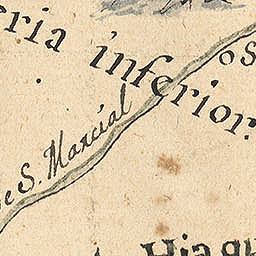 eria inferior.
o S
e S. Marcial
Hiaqu